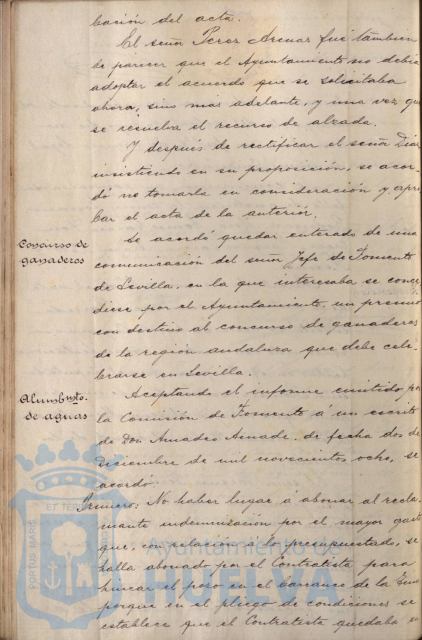 bación del acta.
El señor Perez Arenas fué tambien
de parecer que el Ayuntamiento no debia
adoptar el acuerdo que se solicitaba
ahora, sino mas adelante, y una vez que
se resuelva el recurso de alzada.
Y después de rectificar el señor Diaz
insistiendo en su proposición, se acor-
dó no tomarla en consideración y apro-
bar el acta de la anterior.
Concurso de
ganaderos
Se acordó quedar enterado de una
comunicación del señor Jefe de Fomento
de Sevilla, en la que interesaba se conce-
diese por el Ayuntamiento, un premio
con destino al concurso de ganaderos
de la región andaluza que debe cele-
brarse en Sevilla.
Alumbmto.
de aguas
Aceptando el informe emitido por
la Comisión de Fomento á un escrito
de Don Amadeo, de fecha dos de
Diciembre de mil novecientos ocho, se
acordó:
Primero: No haber lugar á abonar al recla-
mante indemnización por el mayor gasto
que, con relación á lo presupuestado, se
halla abonado por el Contratista para
hincar el pozo en el barranco de la
porque en el pliego de condiciones se
establece que el Contratista quedaba
Ayuntamiento de
HUELVA
PORTUS MARIS ET TERRAE